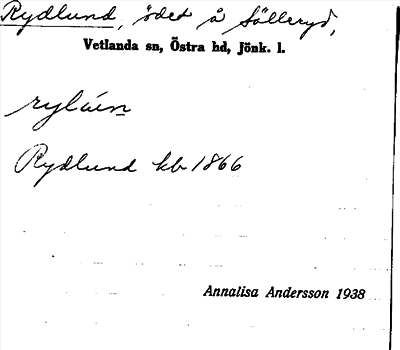 Rydlund, ödet å Sälleryd,
Vetlanda sn, Östra hd, Jönk. l.
rylún
Rydlund kb 1866
Annalisa Andersson 1938